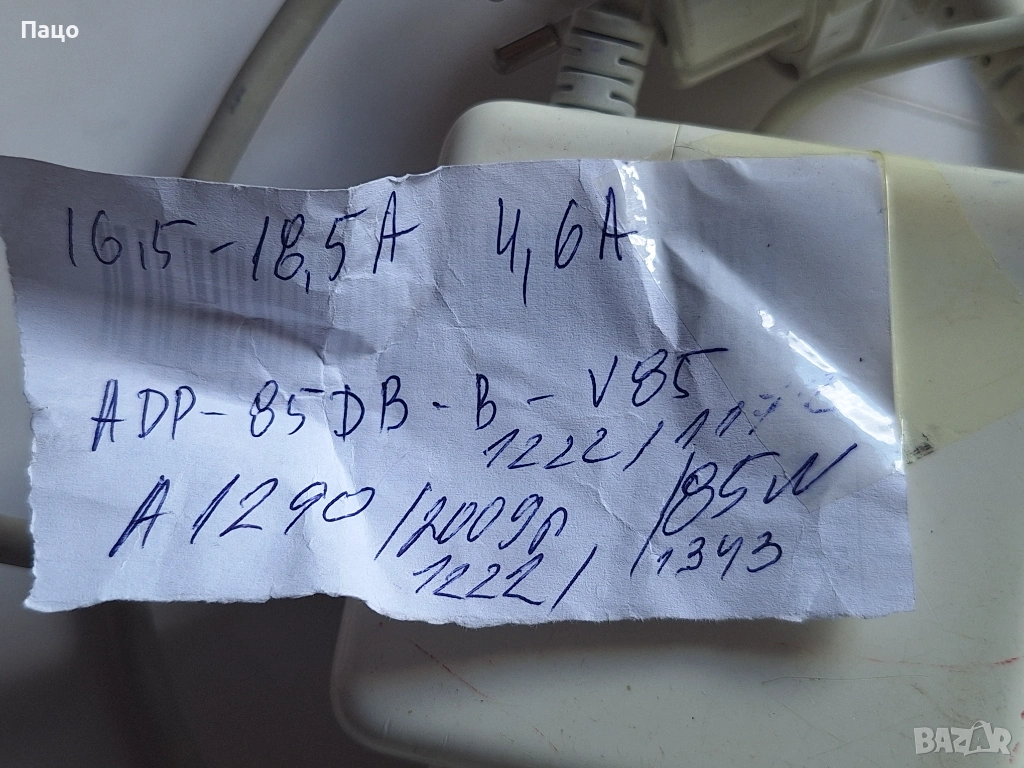 Пацо
16,5-18,5A 4,6A
ADP-85DB-B-V85
1222/
A/1290/2009г /85W
1222/ /1343
BAZAR